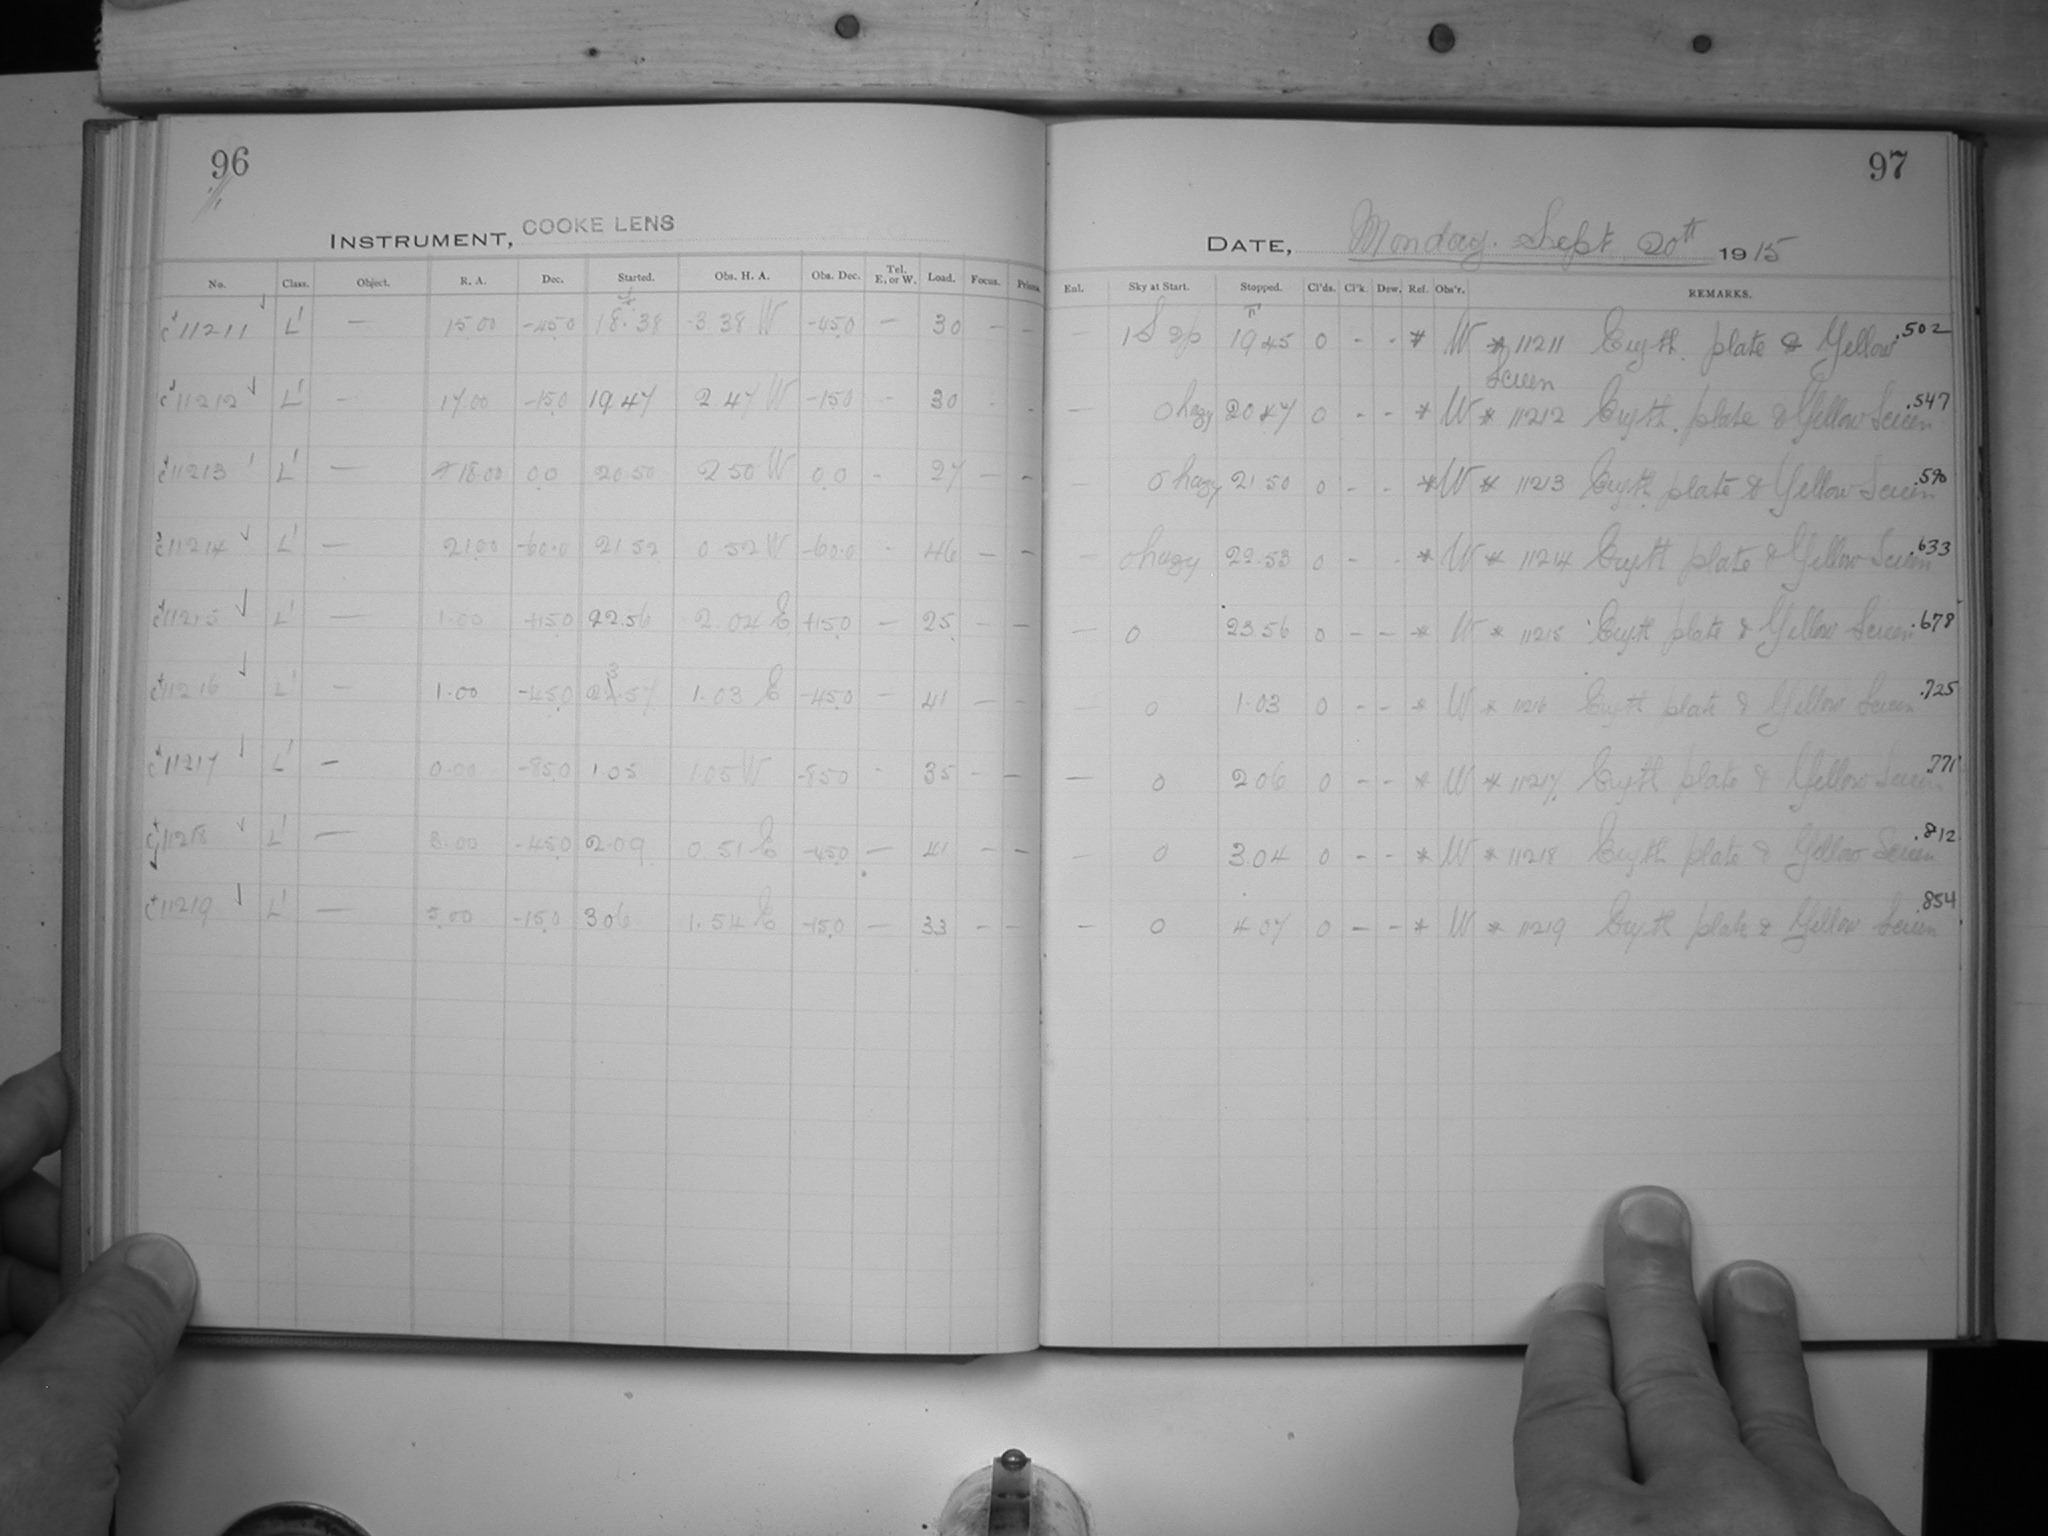 96
INSTRUMENT, COOKE LENS
No. Class. Object. R. A. Dec. Started. Obs. H. A. Obs. Dec. Tel. E. or W. Load. Focus. Prisms.
11211 L' — 15.00 -45.0 18.38 -3.38 W -45.0 — 30 - -
11212 L' — 17.00 -15.0 19.47 2.47 W -15.0 - 30 - -
11213 L' — 18.00 0.0 20.50 2.50 W 0.0 - 27 - -
11214 L' — 21.00 -60.0 21.52 0.52 W -60.0 - 46 - -
11215 L' — 1.00 +15.0 22.56 2.04 E +15.0 — 25 - -
11216 L' — 1.00 -45.0 23.57 1.03 E -45.0 — 41 - -
11217 L' — 0.00 -85.0 1.05 1.05 W -85.0 - 35 - -
11218 L' — 3.00 -45.0 2.09 0.51 E -45.0 — 41 - -
11219 L' — 5.00 -15.0 3.06 1.54 E -15.0 — 33 - -
97
DATE, Monday. Sept 20th 1915
Enl. Sky at Start. Stopped. Cl'ds. Cl'k. Dew. Ref. Obs'r. REMARKS.
— 1 S 19.45 0 - - * W * 11211 Eryth. plate & Yellow .502
Screen
— 0 hazy 20.47 0 - - * W * 11212 Eryth. plate & Yellow Screen .547
— 0 hazy 21.50 0 - - * W * 11213 Eryth plate & Yellow Screen .590
— 0 hazy 22.53 0 - - * W * 11214 Eryth plate & Yellow Screen .633
— 0 23.56 0 - - * W * 11215 Eryth plate & Yellow Screen .678
— 0 1.03 0 - - * W * 11216 Eryth plate & Yellow Screen .725
— 0 2.06 0 - - * W * 11217 Eryth plate & Yellow Screen .771
— 0 3.04 0 - - * W * 11218 Eryth plate & Yellow Screen .812
— 0 4.07 0 - - * W * 11219 Eryth plate & Yellow Screen .854